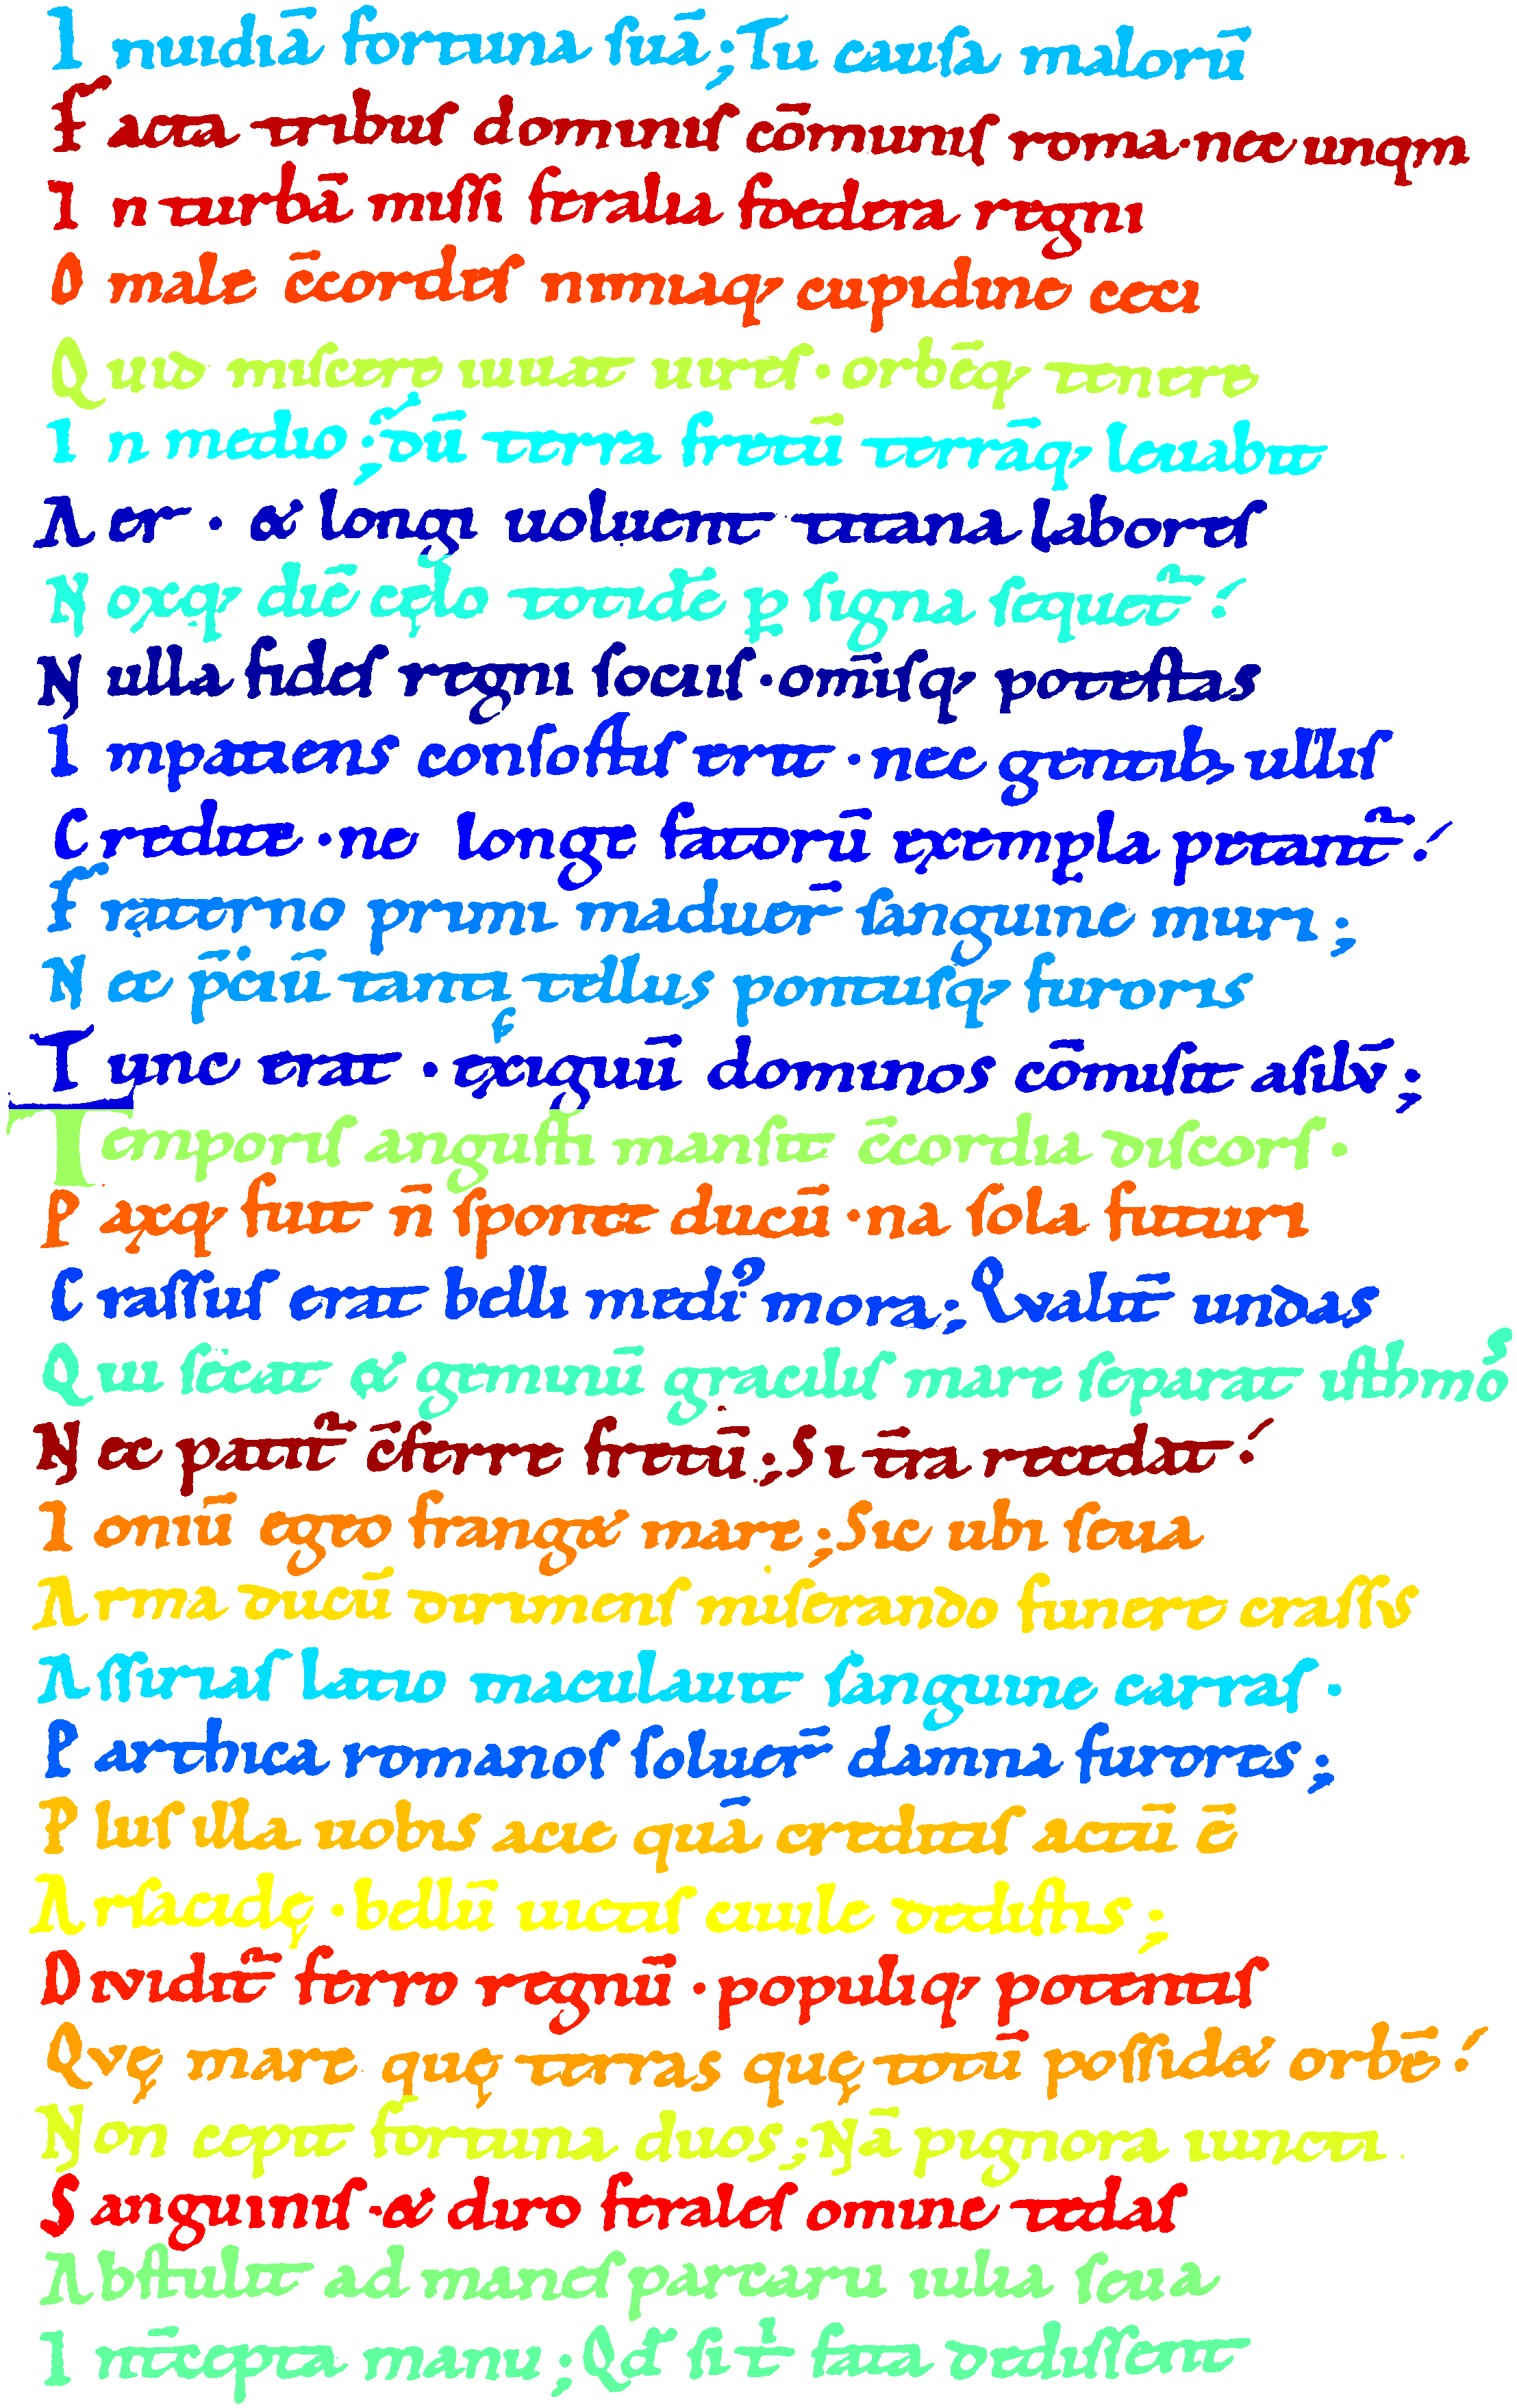 I nuidiā fortuna ſuā; Tu cauſa malorū
F acta tribuſ dominiſ cōmuniſ roma · nec unqm
I n turbā miſſi feralia foedera regni
O male c̄cordeſ nimiaq, cupidine ceci
Q uid miſcere iuuat uireſ · orbēq, tenere
I n medio; dū terra fretū terrāq, leuabit
A er · & longi uoluent titana laboreſ
N oxq, diē cęlo totidē ꝑ ſigna ſequet̃ :́
N ulla fideſ regni ſociiſ · om̄iſq, poteſtas
I mpatienſ conſortiſ erit · nec gentib, ulliſ
C redite · ne longe fatorū exempla petant̃ :́
F raterno primi maduer̄ ſanguine muri ;
N ec p̄ciū tanti tellus pontuſq, furoris
T unc erat · exiguū dominos cōmiſit aſilv̄ ;
T emporiſ anguſti manſit c̄cordia diſcorſ ·
P axq, fuit n̄ ſponte ducū · na ſola futuri
C raſſuſ erat belli medi᾽ mora ; Qvalit̄ undas
Q ui ſecat & geminū graciliſ mare ſeparat iſthmoˢ
N ec patit̃ c̄ferre fretū ; Si t̄ra recedat :́
I oniū egeo frang& mare ; Sic ubi ſeua
A rma ducū dirimenſ miſerando funere craſſvs
A ſſiriaſ latio maculauit ſanguine carraſ ·
P arthica romanoſ ſoluer̄ damna furores ;
P luſ illa uobis acie quā creditiſ actū ē
A rſacidę · bellū uictiſ ciuile dediſtis ;
D ividit̃ ferro regnū · populiq, potentiſ
Q vę mare quę terras quę totū poſſid& orbē :́
N on cepit fortuna duos ; Nā pignora iuncti
S anguiniſ · & diro feraleſ omine tedaſ
A bſtulit ad maneſ parcaru iulia ſeua
I nt̄cepta manu ; Qd̄ ſi t̵ fata dediſſent